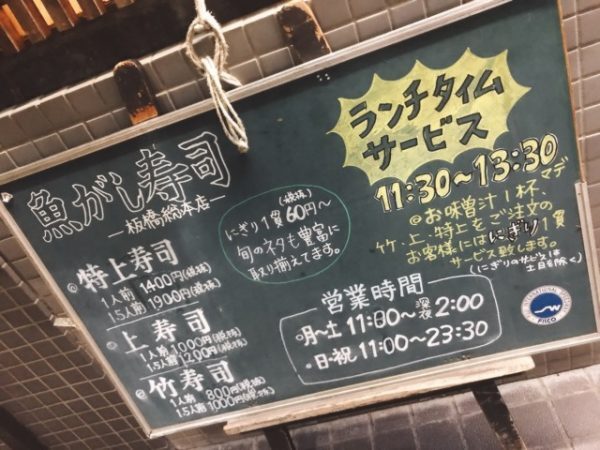 魚がし寿司
―板橋総本店―
特上寿司
1人前 1400円(税抜)
1.5人前 1900円(税抜)
上寿司
1人前 1000円(税抜)
1.5人前 1200円(税抜)
竹寿司
1人前 800円(税抜)
1.5人前 1000円(税抜)
にぎり1貫60円～(税抜)
旬のネタも豊富に
取り揃えてます。
ランチタイム
サービス
11:30～13:30マデ
@お味噌汁1杯、
竹・上・特上をご注文の
お客様にはにぎり1貫
サービス致します。
(にぎりのサービスは
土日を除く)
営業時間
・月～土 11:00～深夜2:00
・日・祝 11:00～23:30